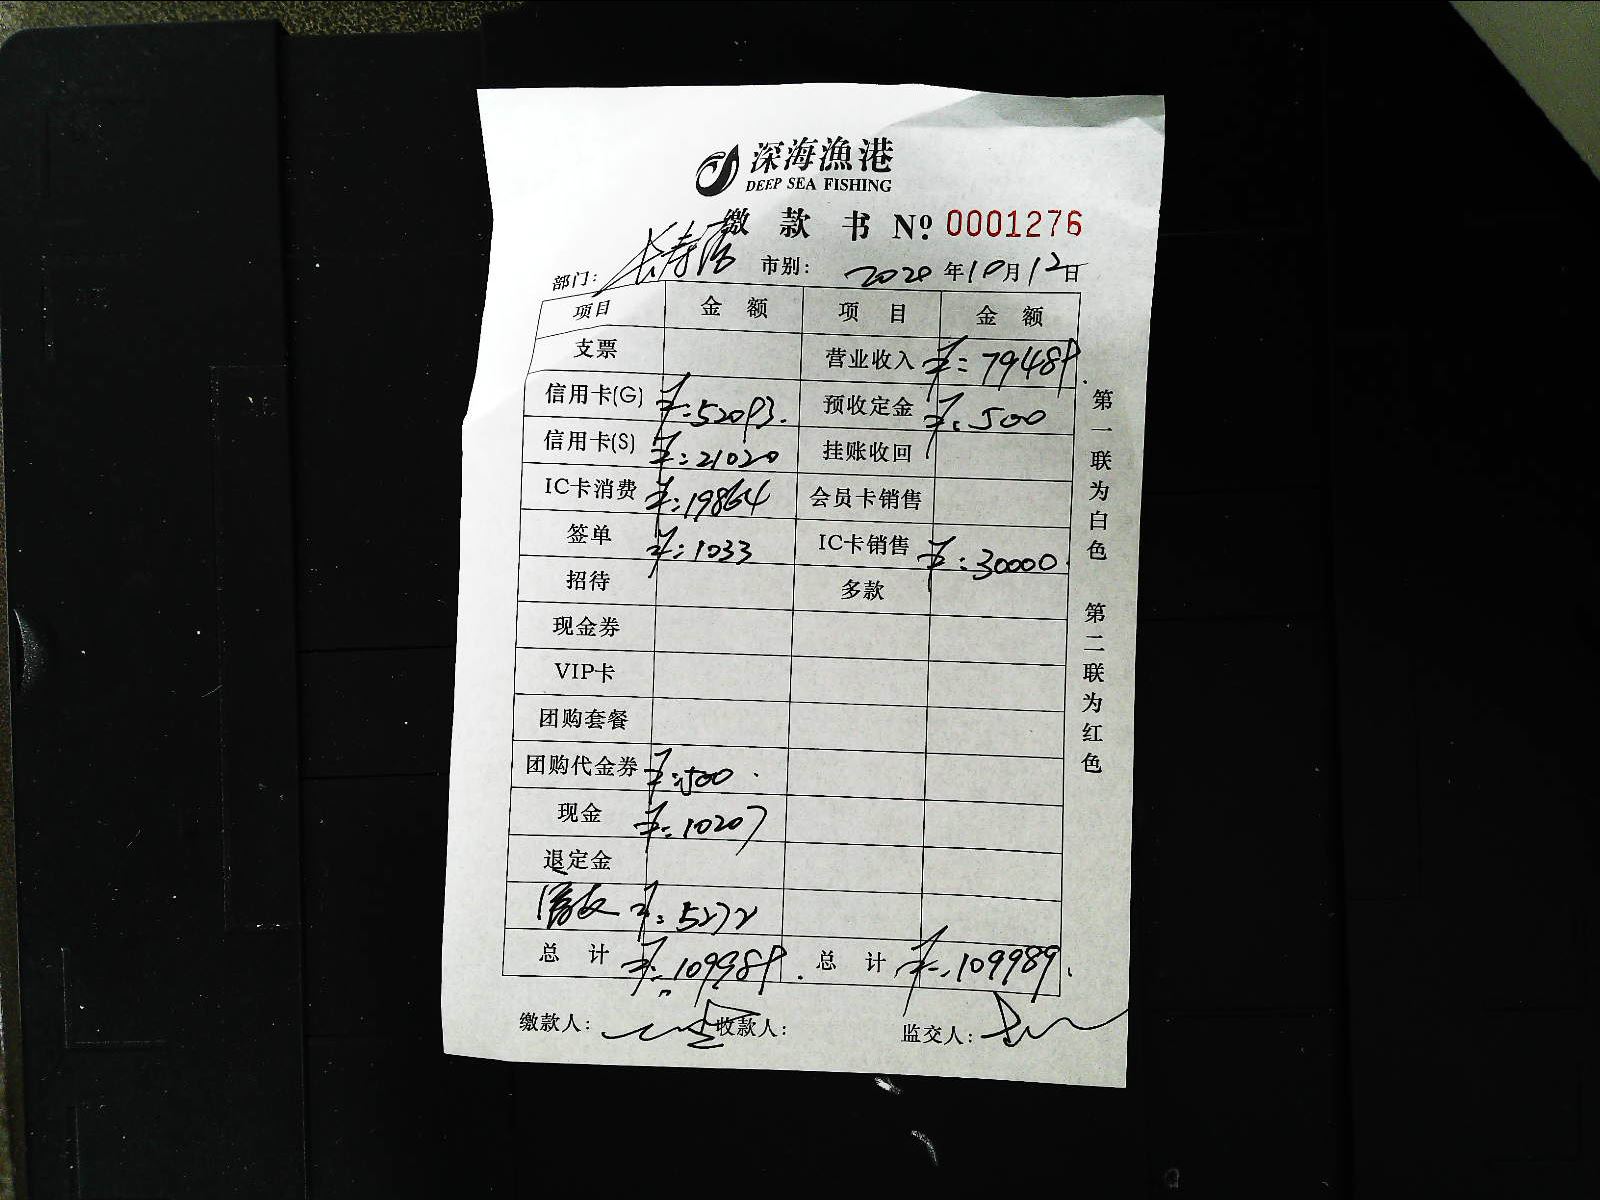 深海漁港
DEEP SEA FISHING
缴款书 Nº 0001276
部门: 长寿路 市别: 2020年10月12日
项目 金额 项目 金额
支票 营业收入 ¥:79489.
信用卡(G) ¥:52093. 预收定金 ¥:500
信用卡(S) ¥:21020 挂账收回
IC卡消费 ¥:19864 会员卡销售
签单 ¥:1033 IC卡销售 ¥:30000.
招待 多款
现金券
VIP卡
团购套餐
团购代金券 ¥:500.
现金 ¥:10207
退定金
¥:5272
总计 ¥:109989. 总计 ¥:109989.
缴款人: 收款人: 监交人:
第一联为白色 第二联为红色